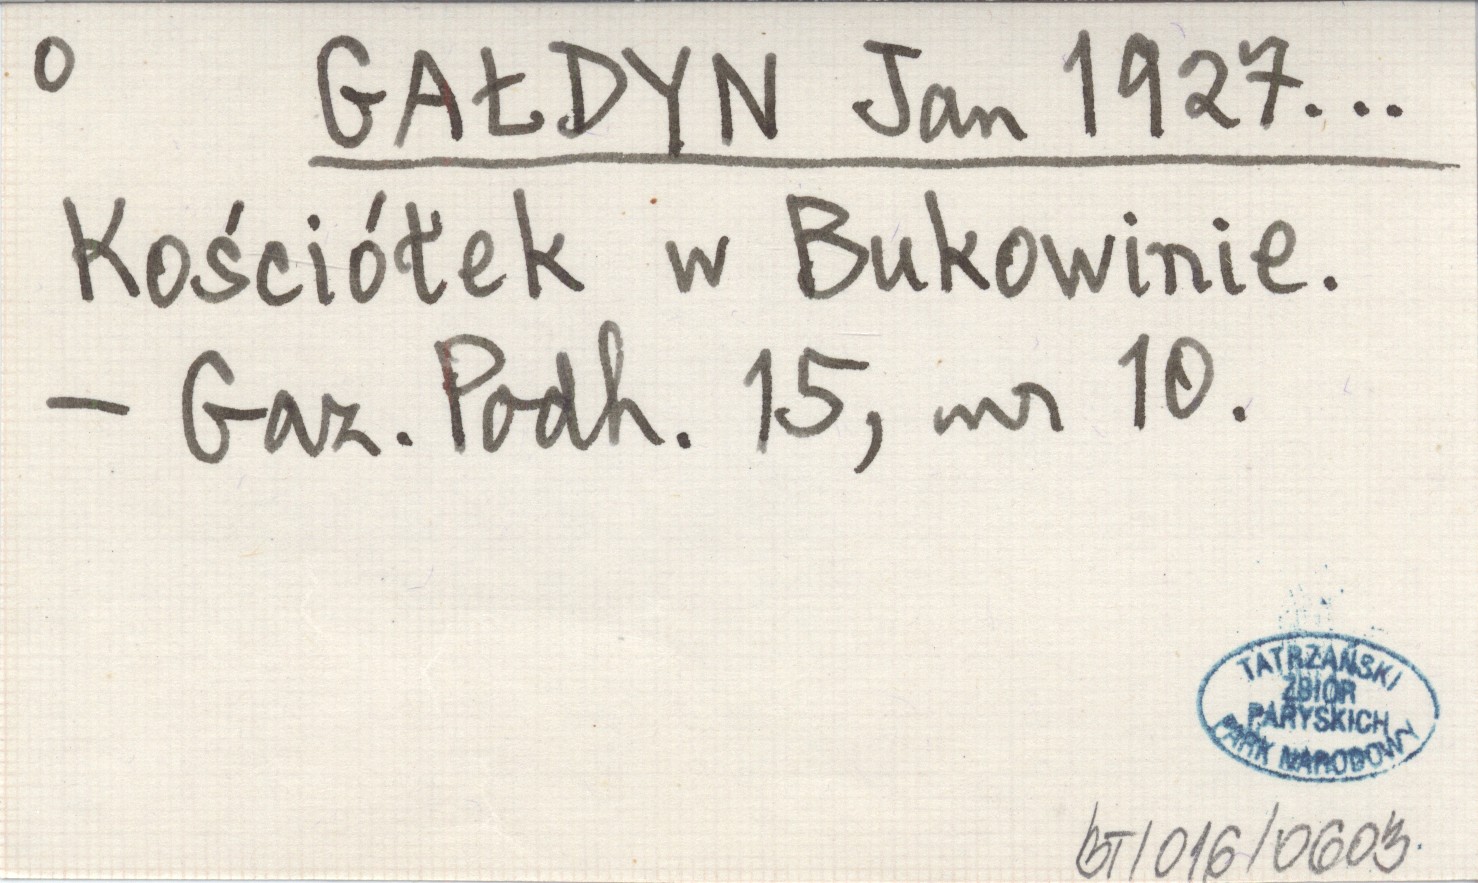 o GAŁDYN Jan 1927...
Kościółek w Bukowinie.
– Gaz. Podh. 15, nr 10.
TATRZAŃSKI
ZBIÓR
PARYSKICH
PARK NARODOWY
BT/016/0603.